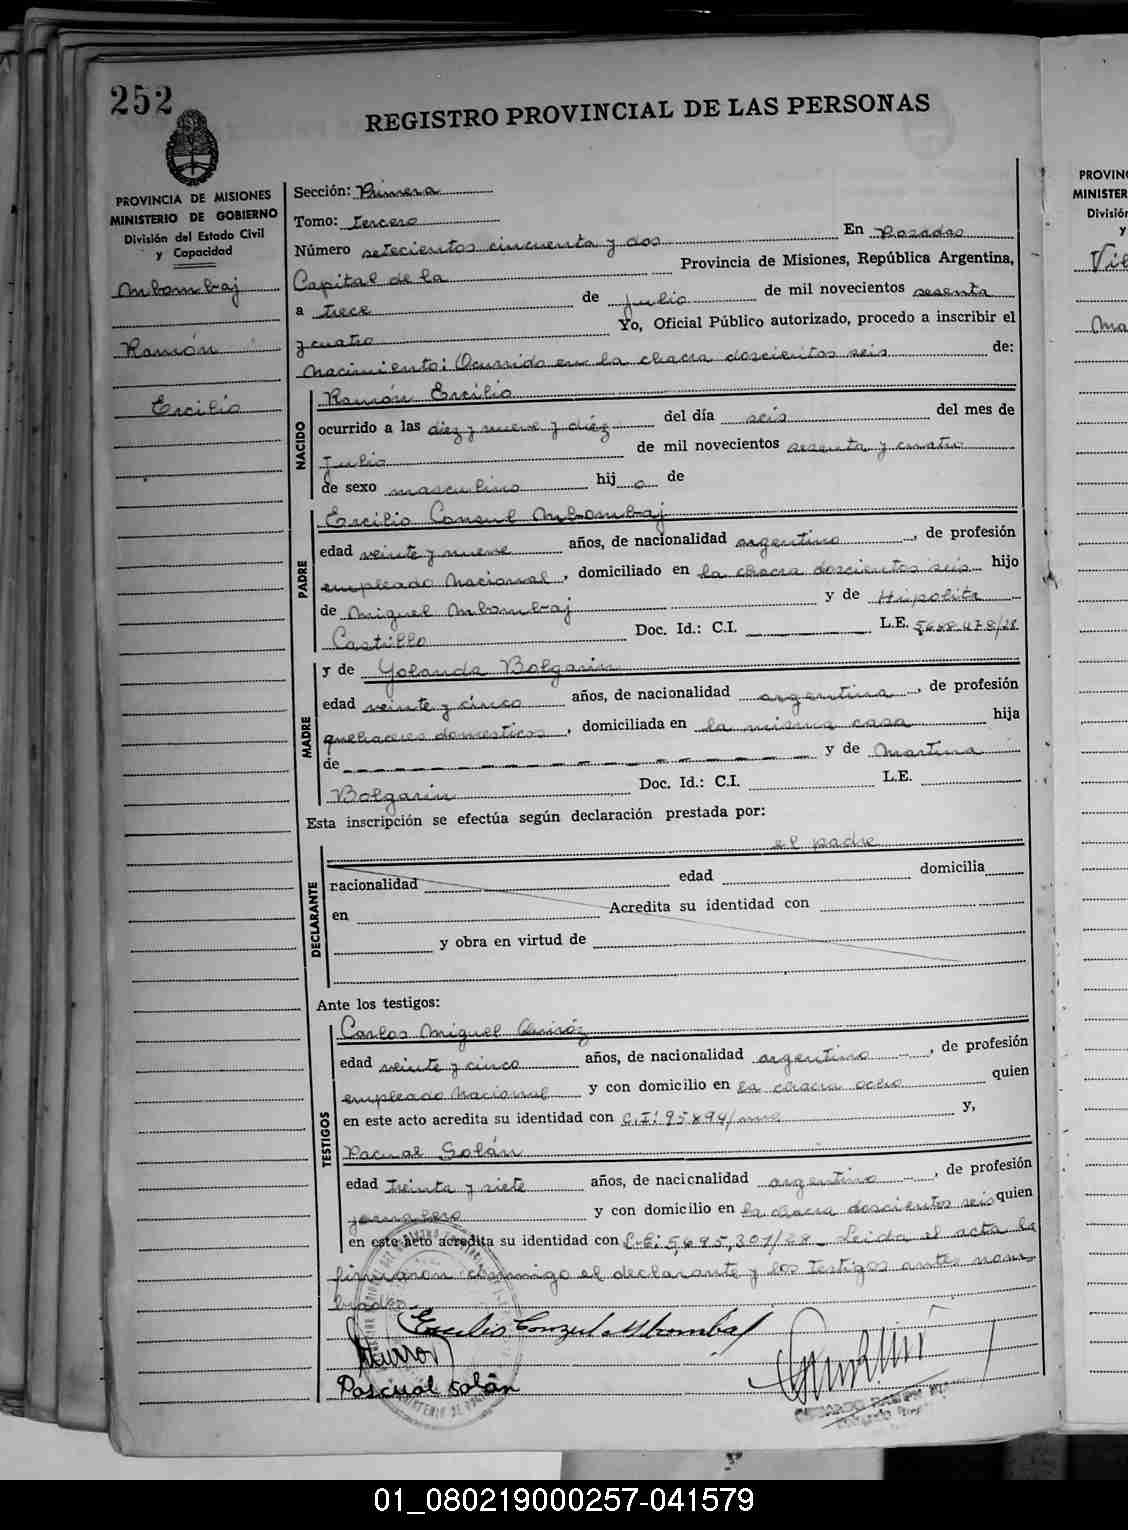 252
REGISTRO PROVINCIAL DE LAS PERSONAS
PROVINCIA DE MISIONES
MINISTERIO DE GOBIERNO
División del Estado Civil
y Capacidad
Mbombaj
Ramón
Ercilio
Sección: Primera
Tomo: tercero
Número setecientos cincuenta y dos En Posadas
Capital de la Provincia de Misiones, República Argentina,
a trece de julio de mil novecientos sesenta
y cuatro Yo, Oficial Público autorizado, procedo a inscribir el
nacimiento: Ocurrido en la chacra doscientos seis de:
NACIDO
Ramón Ercilio
ocurrido a las diez y nueve y diéz del día seis del mes de
julio de mil novecientos sesenta y cuatro
de sexo masculino hij o de
PADRE
Ercilio Consul Mbombaj
edad veinte y nueve años, de nacionalidad argentino, de profesión
empleado Nacional, domiciliado en la chacra doscientos seis hijo
de Miguel Mbombaj y de Hipólita
Castillo Doc. Id.: C.I. L.E. 5688478/28
MADRE
y de Yolanda Bolgarin
edad veinte y cinco años, de nacionalidad argentina, de profesión
quehaceres domesticos, domiciliada en la misma casa hija
de y de Martina
Bolgarin Doc. Id.: C.I. L.E.
Esta inscripción se efectúa según declaración prestada por:
el padre
DECLARANTE
racionalidad edad domicilia
en Acredita su identidad con
y obra en virtud de
Ante los testigos:
TESTIGOS
Carlos Miguel Quiróz
edad veinte y cinco años, de nacionalidad argentino, de profesión
empleado Nacional y con domicilio en la chacra ocho quien
en este acto acredita su identidad con C.I: y,
Pacual Solán
edad treinta y siete años, de nacionalidad argentino, de profesión
jornalero y con domicilio en la chacra doscientos seis quien
en este acto acredita su identidad con L.E: 5695,307/28 Leida el acta la
firmaron conmigo el declarante y los testigos antes nom
brados
Ercilio Conzul Mbombaj
Pascual Solán
PROVINC
MINISTER
Divisió
y
01_080219000257-041579